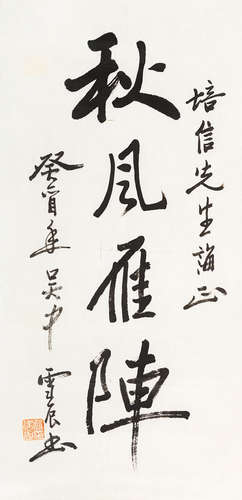 培信先生誨正
秋風雁陣
癸酉年吳中雲辰书